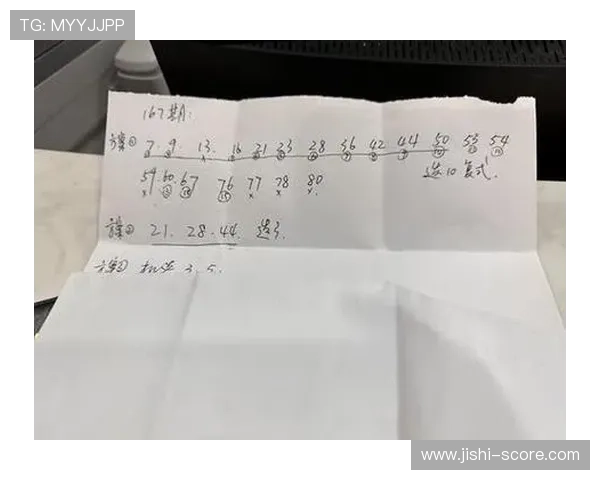 TG: MYYJJPP
167期:
方案① 7. 9. 13. 16 21 23 28 36 42 44 50 53 54
选10复式.
59. 60. 67 76 77 78 80
方案② 21. 28. 44. 选3.
方案③ 3. 5.
www.jishi-score.com